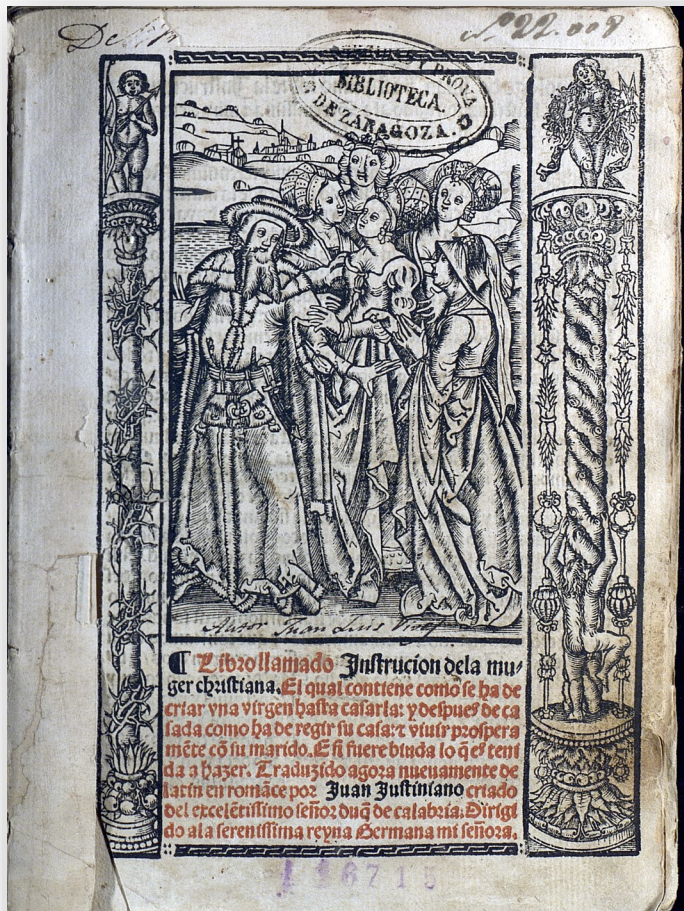 Nº 22.008
BIBLIOTECA.
DE ZARAGOZA.
Autor Juan Luis Vives
¶ Libro llamado Instrucion dela mu-
ger christiana. El qual contiene como se ha de
criar vna virgen hasta casarla: y despues de ca
sada como ha de regir su casa: ⁊ viuir prospera
mēte cō su marido. E si fuere biuda lo q̄ es teni
da a hazer. Traduzido agora nueuamente de
latin en romāce por Juan Justiniano criado
del excelētissimo señor duq̄ de calabria. Dirigi
do ala serenissima reyna Germana mi señora.